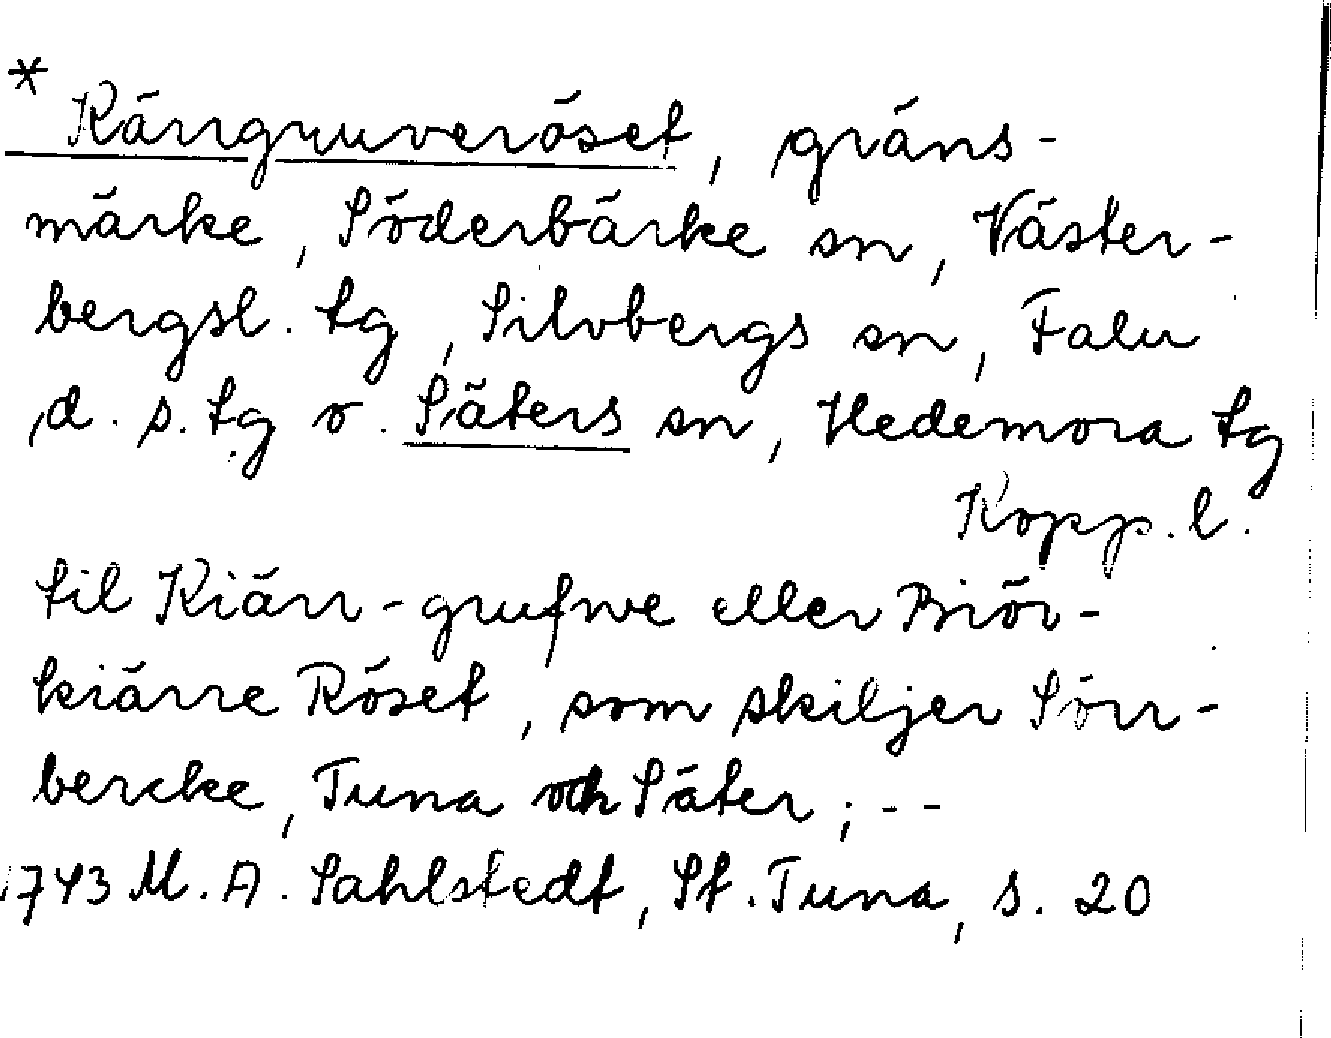 * Kärrgruveröset, gräns-
märke, Söderbärke sn, Väster-
bergsl. tg, Silvbergs sn, Falu
d. s. tg o. Säters sn, Hedemora tg
Kopp. l.
til Kiärr-grufwe eller Biör-
kiärre Röset, som skiljer Sörr-
bercke, Tuna och Säter; --
1743 M. A. Sahlstedt, St. Tuna, s. 20